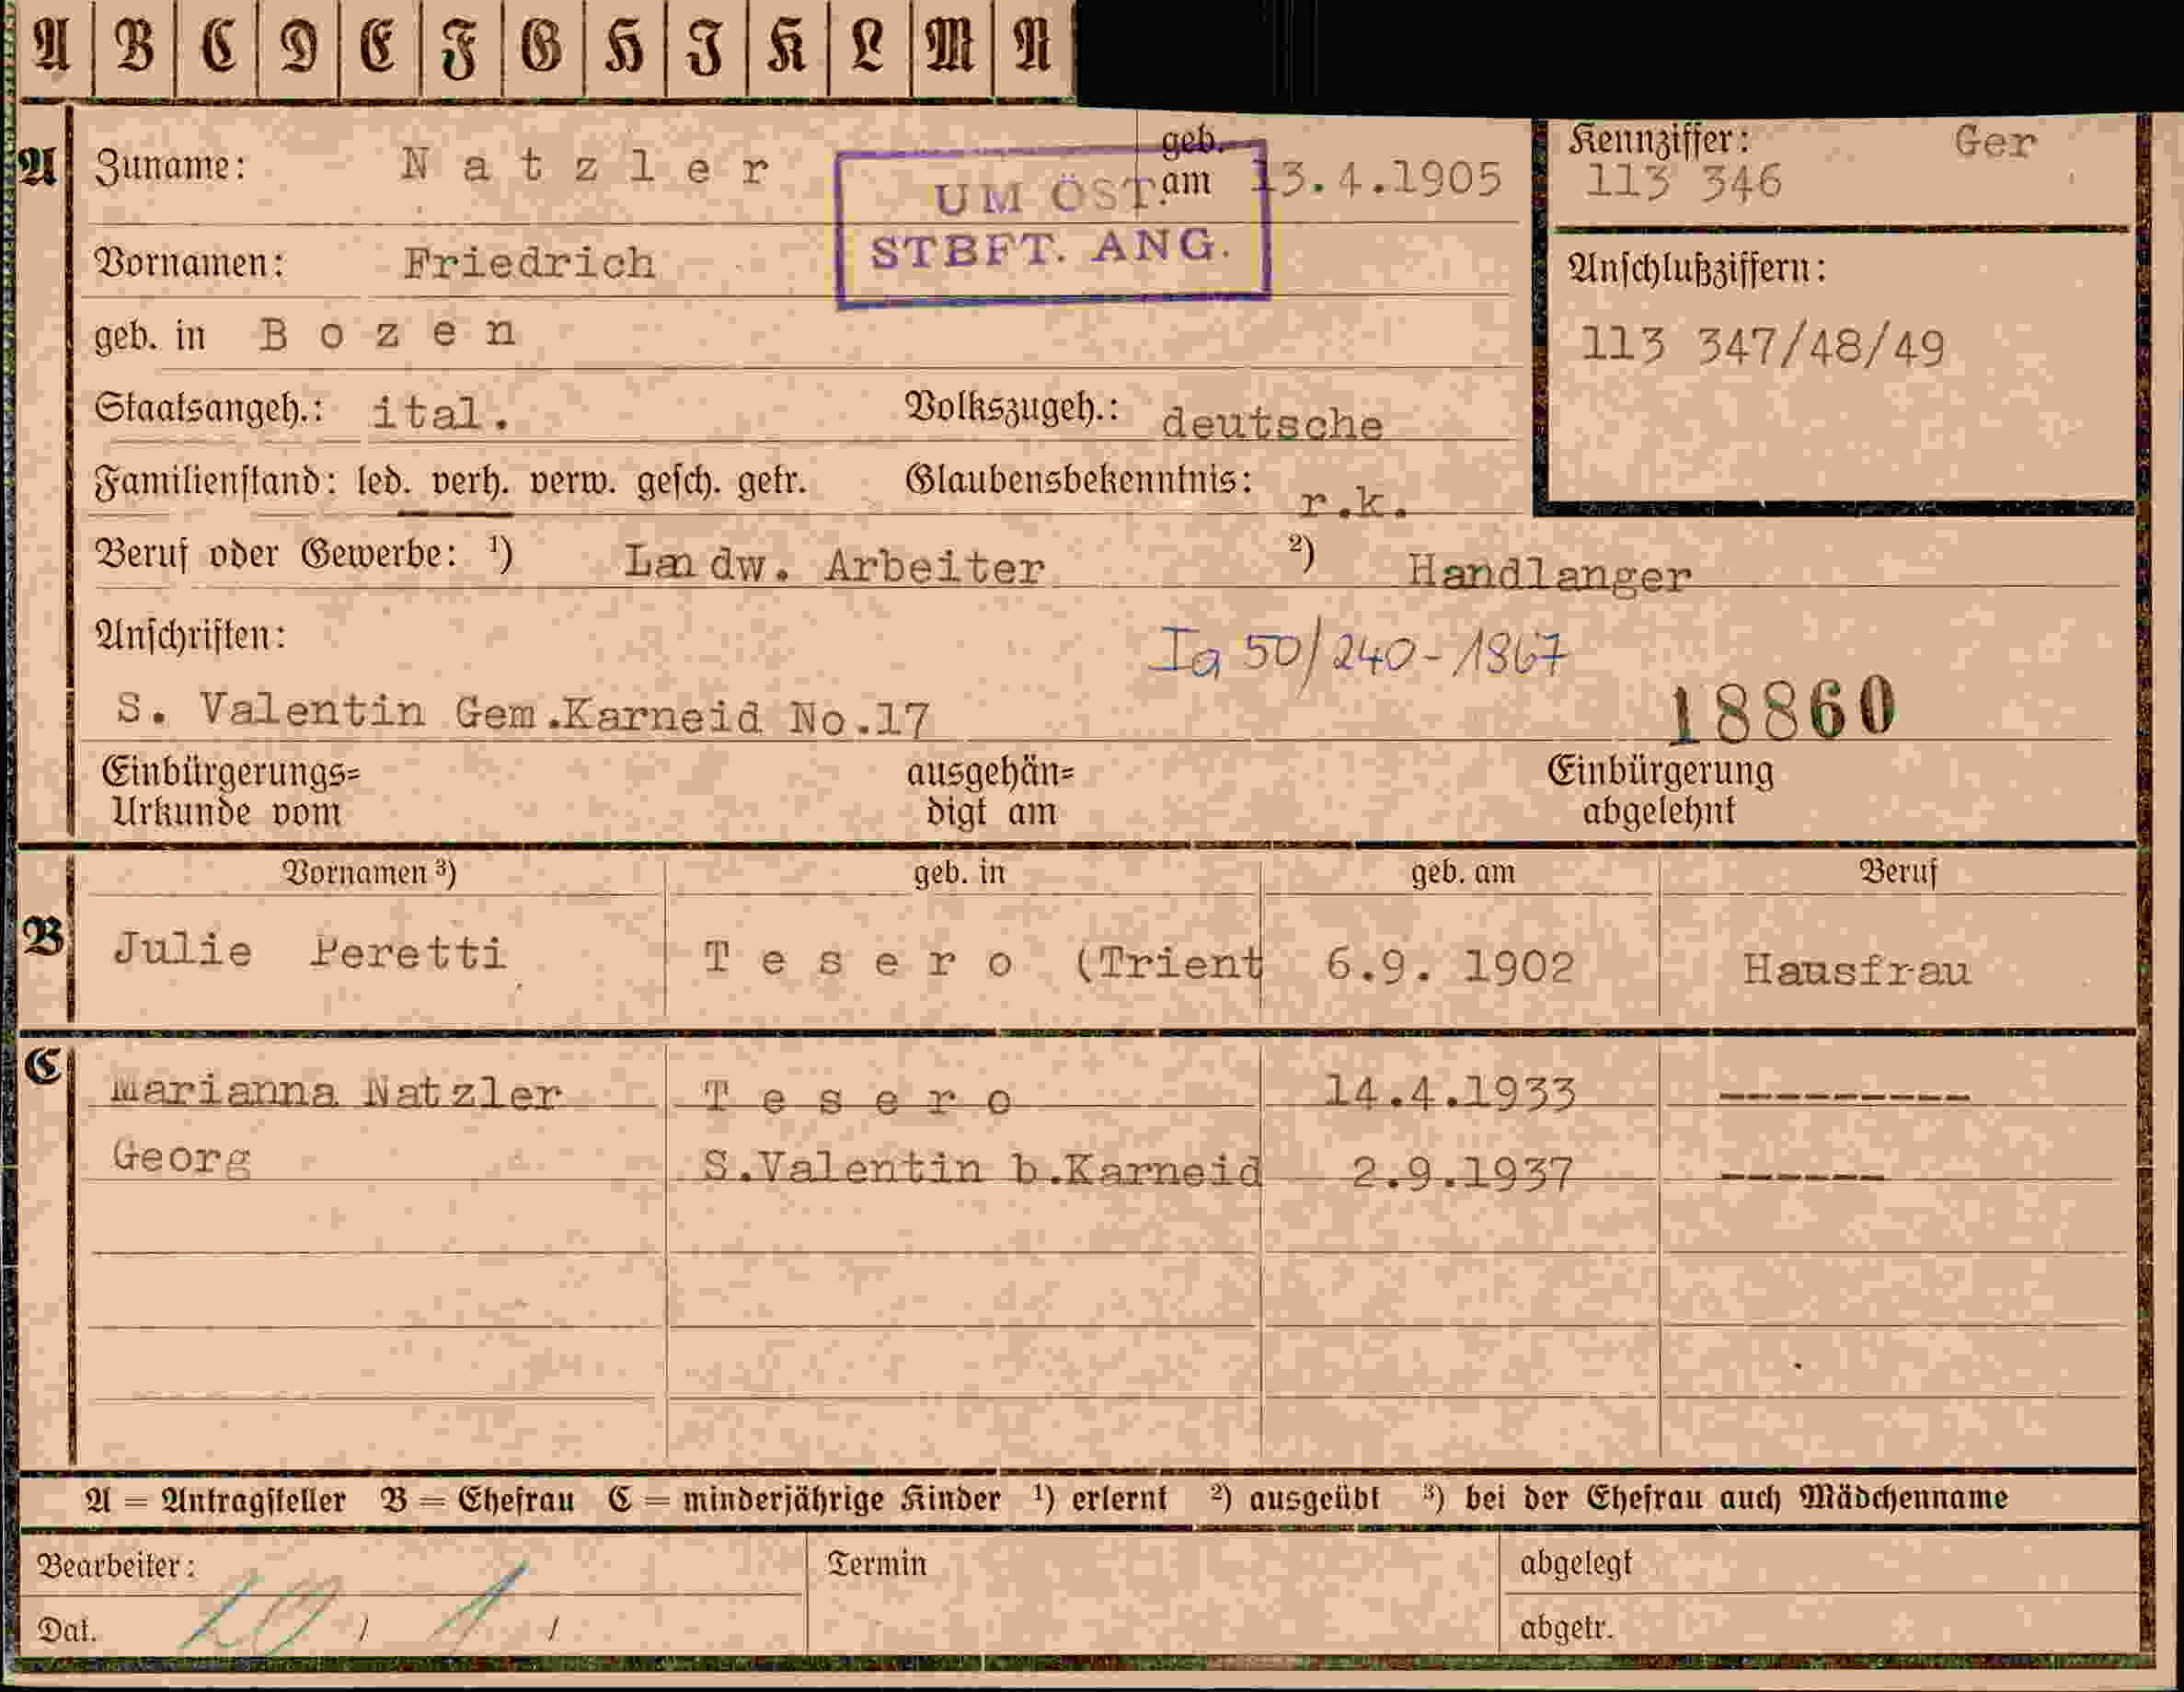 A B C D E F G H I K L M N
A Zuname: Natzler geb. am 13.4.1905
UM ÖST.
STBFT. ANG.
Kennziffer: Ger
113 346
Vornamen: Friedrich
Anschlußziffern:
113 347/48/49
geb. in Bozen
Staatsangeh.: ital. Volkszugeh.: deutsche
Familienstand: led. verh. verw. gesch. getr. Glaubensbekenntnis: r.k.
Beruf oder Gewerbe: 1) Landw. Arbeiter 2) Handlanger
Anschriften: Ia 50/240-1867
S. Valentin Gem.Karneid No.17 18860
Einbürgerungs= ausgehän= Einbürgerung
Urkunde vom digt am abgelehnt
Vornamen 3) geb. in geb. am Beruf
B Julie Peretti Tesero (Trient 6.9. 1902 Hausfrau
C Marianna Natzler Tesero 14.4.1933 ---------
Georg S.Valentin b.Karneid 2.9.1937 ------
A = Antragsteller B = Ehefrau C = minderjährige Kinder 1) erlernt 2) ausgeübt 3) bei der Ehefrau auch Mädchenname
Bearbeiter: Termin abgelegt
Dat. / / abgetr.